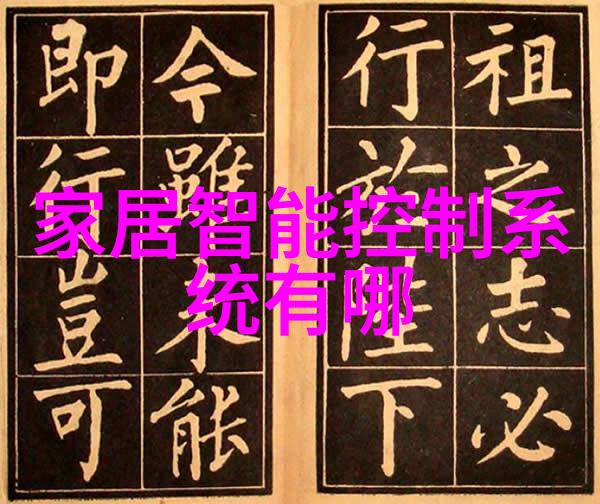 祖之志必
行於陛下
今雖未能
即行豈可
家居智能控制系
统有哪